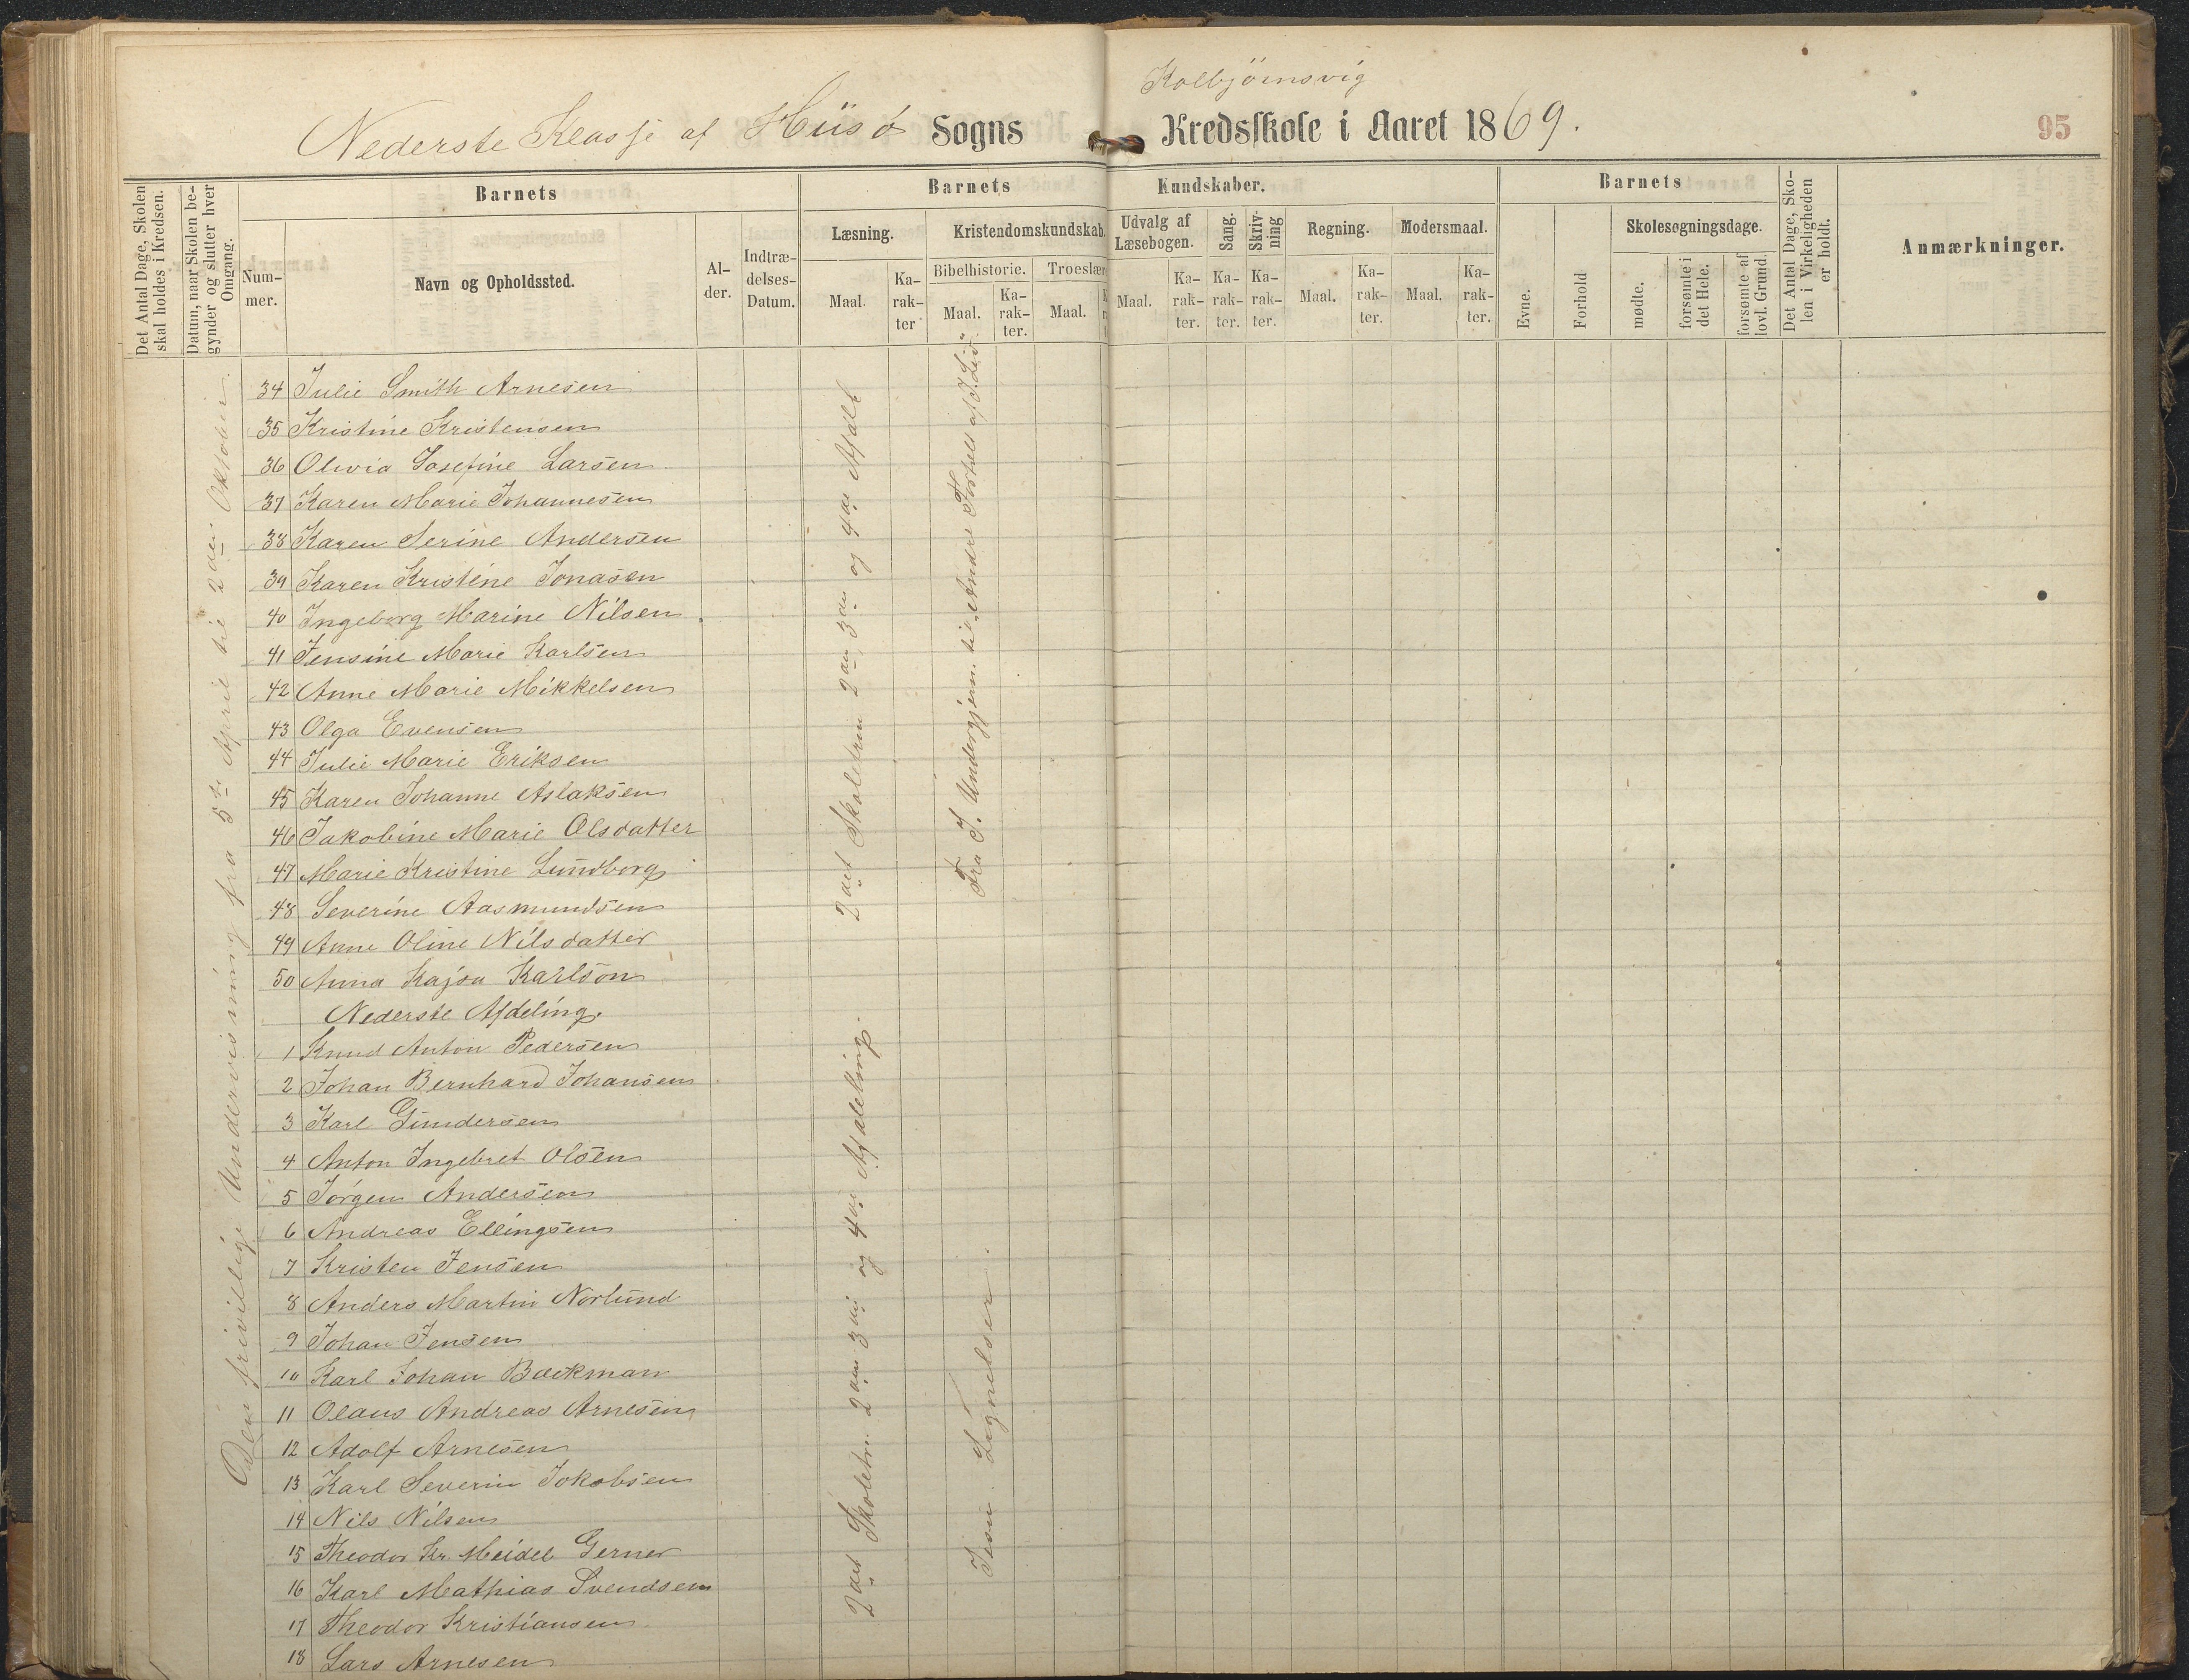 Kolbjörnsvig
Nederste Klasse af Hiisø Sogns Kredsskole i Aaret 1869.
95
Det Antal Dage, Skolen skal holdes i Kredsen.
Datum, naar Skolen begynder og slutter hver Omgang.
Barnets
Nummer.
Navn og Opholdssted.
Alder.
Indtrædelses-Datum.
Barnets Kundskaber.
Læsning.
Maal.
Karakter
Kristendomskundskab.
Bibelhistorie.
Maal.
Karakter.
Troeslær
Maal.
Udvalg af Læsebogen.
Maal.
Karakter.
Sang.
Karakter.
Skrivning
Karakter.
Regning.
Maal.
Karakter.
Modersmaal.
Maal.
Karakter.
Barnets
Evne.
Forhold
Skolesøgningsdage.
mødte.
forsømte i det Hele.
forsømte af lovl. Grund.
Det Antal Dage, Skolen i Virkeligheden er holdt.
Anmærkninger.
Den frivillige Undervisning fra 5te April til 2den Oktober.
34 Julie Smith Arnesen
35 Kristine Kristensen
36 Olivia Josefine Larsen
37 Karen Marie Johannesen
38 Karen Serine Andersen
39 Karen Kristine Jonasen
40 Ingeborg Marine Nilsen
41 Jensine Marie Karlsen
42 Anne Marie Mikkelsen
43 Olga Evensen
44 Julie Marie Eriksen
45 Karen Johanne Aslaksen
46 Jakobine Marie Olsdatter
47 Marie Kristine Lundborg
48 Severine Aasmundsen
49 Anne Oline Nilsdatter
50 Anna Kajsa Karlson
Nederste Afdeling.
1 Knud Anton Pedersen
2 Johan Bernhard Johansen
3 Karl Gundersen
4 Anton Ingebret Olsen
5 Jørgen Andersen
6 Andreas Ellingsen
7 Kristen Jensen
8 Anders Martin Norlund
9 Johan Jensen
10 Karl Johan Backman
11 Olaus Andreas Arnesen
12 Adolf Arnesen
13 Karl Severin Jokobsen
14 Nils Nilsen
15 Theodor Kr. Meidel Gerner
16 Karl Mathias Svendsen
17 Theodor Kristiansen
18 Lars Arnesen
2det Skoletrin 2den 3die og 4de Afdel
Fra J. Undergjern. til „Andre Fortæll af J. Lid“
2det Skoletrin 2den 3die og 4de Afdeling.
Jesu Lignelser.